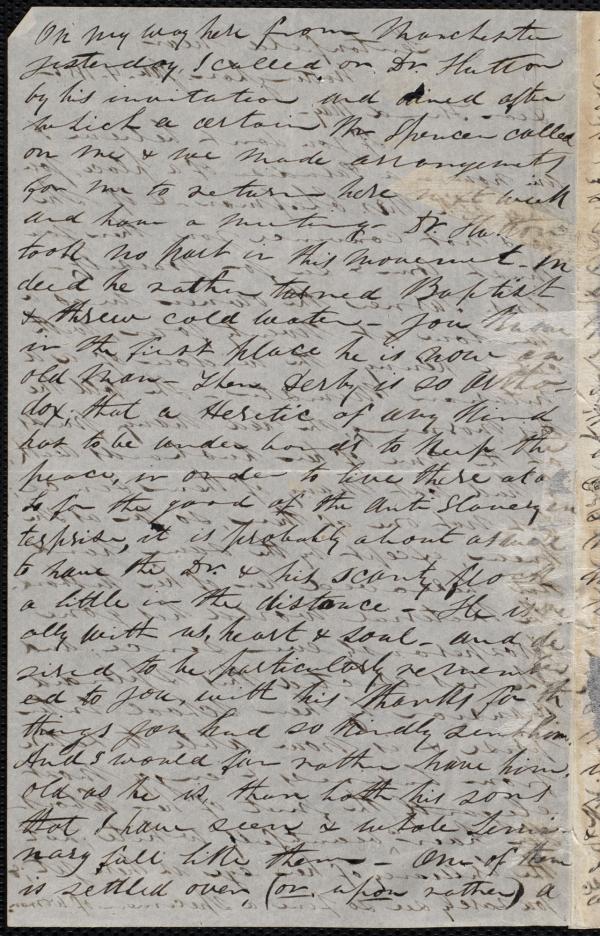 On my way here from Manchester
yesterday, I called on Dr. Hutton
by his invitation and dined after
which a certain Mr Spencer called
on me & we made arrangements
for me to return here next week
and have a meeting. Dr. Hutton
took no part in this movement. In
deed he rather turned Baptist
& threw cold water. You know
in the first place he is now an
old man - Then Derby is so Ortho-
dox, that a Heretic of any kind
has to be under bonds to keep the
peace, in order to live there at a
So for the good of the Anti Slavery en
terprise, it is probably about as well
to have the Dr. & his scanty flock
a little in the distance - He is
ally with us, heart & soul - and de
sired to be particularly rememb
ed to you, with his thanks for th
things you had so kindly sent him.
And I would far rather have him,
old as he is, than both his sons
that I have seen & whole Semi-
nary full like them - One of them
is settled over (or upon rather) a